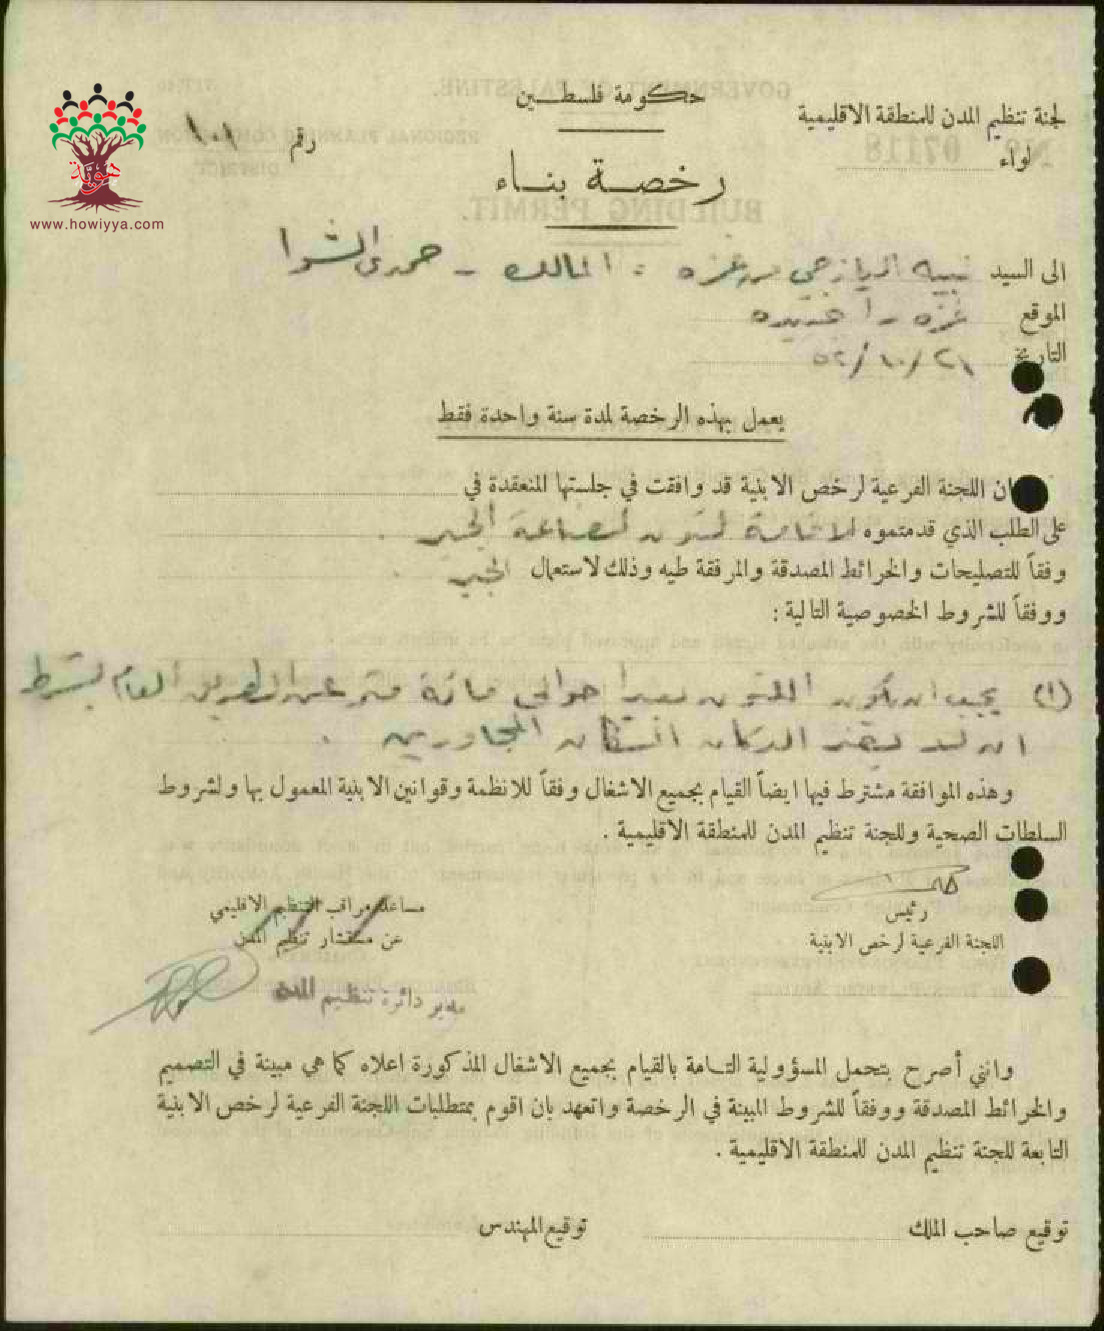 حكومة فلسطين
لجنة تنظيم المدن للمنطقة الاقليمية
لواء
رقم
رخصة بناء
هوية
www.howiyya.com
الى السيد نبيه اليازجي من غزه : المالك - حمدي الشوا
الموقع غزه -
التاريخ ٥٢/١٠/٢١
يعمل بهذه الرخصة لمدة سنة واحدة فقط
ان اللجنة الفرعية لرخص الابنية قد وافقت في جلستها المنعقدة في
على الطلب الذي قدمتموه لاقامة لتون لصناعة الجير .
وفقاً للتصليحات والخرائط المصدقة والمرفقة طيه وذلك لاستعمال الجير .
ووفقاً للشروط الخصوصية التالية :
(١) يجب ان يكون اللتون بعيدا حوالي مائة متر عن الطريق العام بشرط
ان لا يضر الدخان السكان المجاورين .
وهذه الموافقة مشترط فيها ايضاً القيام بجميع الاشغال وفقاً للانظمة وقوانين الابنية المعمول بها ولشروط
السلطات الصحية وللجنة تنظيم المدن للمنطقة الاقليمية .
رئيس
اللجنة الفرعية لرخص الابنية
مساعد مراقب التنظيم الاقليمي
عن مستشار تنظيم المدن
مدير دائرة تنظيم المدن
وانني أصرح بتحمل المسؤولية التامة بالقيام بجميع الاشغال المذكورة اعلاه كما هي مبينة في التصميم
والخرائط المصدقة ووفقاً للشروط المبينة في الرخصة واتعهد بان اقوم بمتطلبات اللجنة الفرعية لرخص الابنية
التابعة للجنة تنظيم المدن للمنطقة الاقليمية .
توقيع صاحب الملك
توقيع المهندس